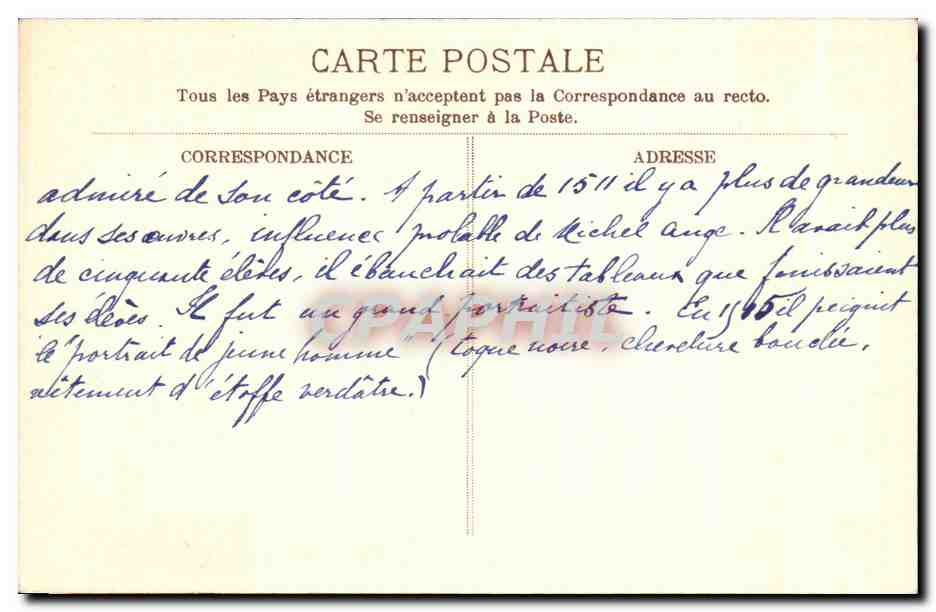 CARTE POSTALE
Tous les Pays étrangers n'acceptent pas la Correspondance au recto.
Se renseigner à la Poste.
CORRESPONDANCE
ADRESSE
admiré de son côté. A partir de 1511 il y a plus de grandeur
dans ses œuvres, influence probable de Michel Ange. Il avait plus
de cinquante élèves, il ébauchait des tableaux que finissaient
ses élèves. Il fut un grand portraitiste. En 1515 il peignit
le "portrait de jeune homme" (toque noire, chevelure bouclée,
vêtement d'étoffe verdâtre.)
CPAPHIL